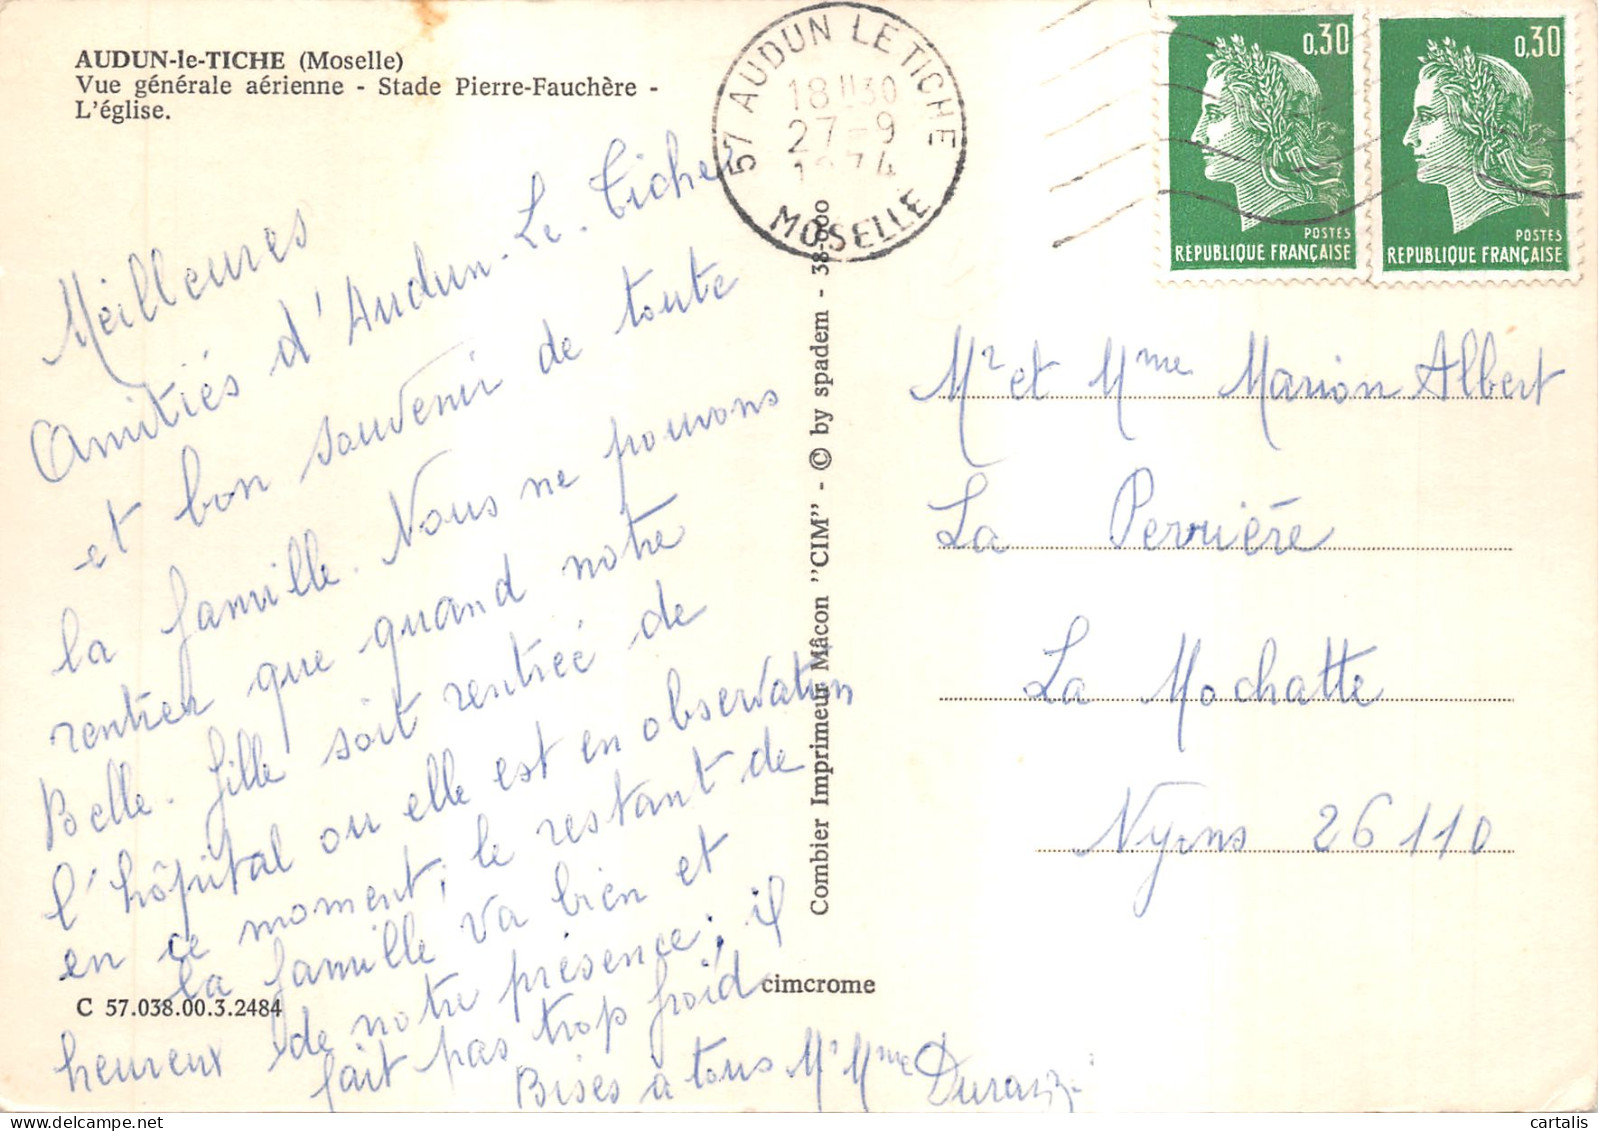 AUDUN-le-TICHE (Moselle)
Vue générale aérienne - Stade Pierre-Fauchère -
L'église.
57 AUDUN LE TICHE
18 H30
27-9
1974
MOSELLE
0,30
POSTES
REPUBLIQUE FRANÇAISE
0,30
POSTES
REPUBLIQUE FRANÇAISE
Meilleures
Amitiés d'Audun-Le-Tiche
et bon souvenir de toute
la famille. Nous ne pouvons
rentrer que quand notre
Belle-fille soit rentrée de
l'hôpital ou elle est en observation
en ce moment, le restant de
la famille va bien et
heureux de notre présence, il
fait pas trop froid
Bises à tous Mr Mme
Combier Imprimeur Mâcon "CIM" - © by spadem - 38-
Mr et Mme Marion Albert
La Perrière
La Mochatte
Nyons 26110
C 57.038.00.3.2484
cimcrome
cartalis